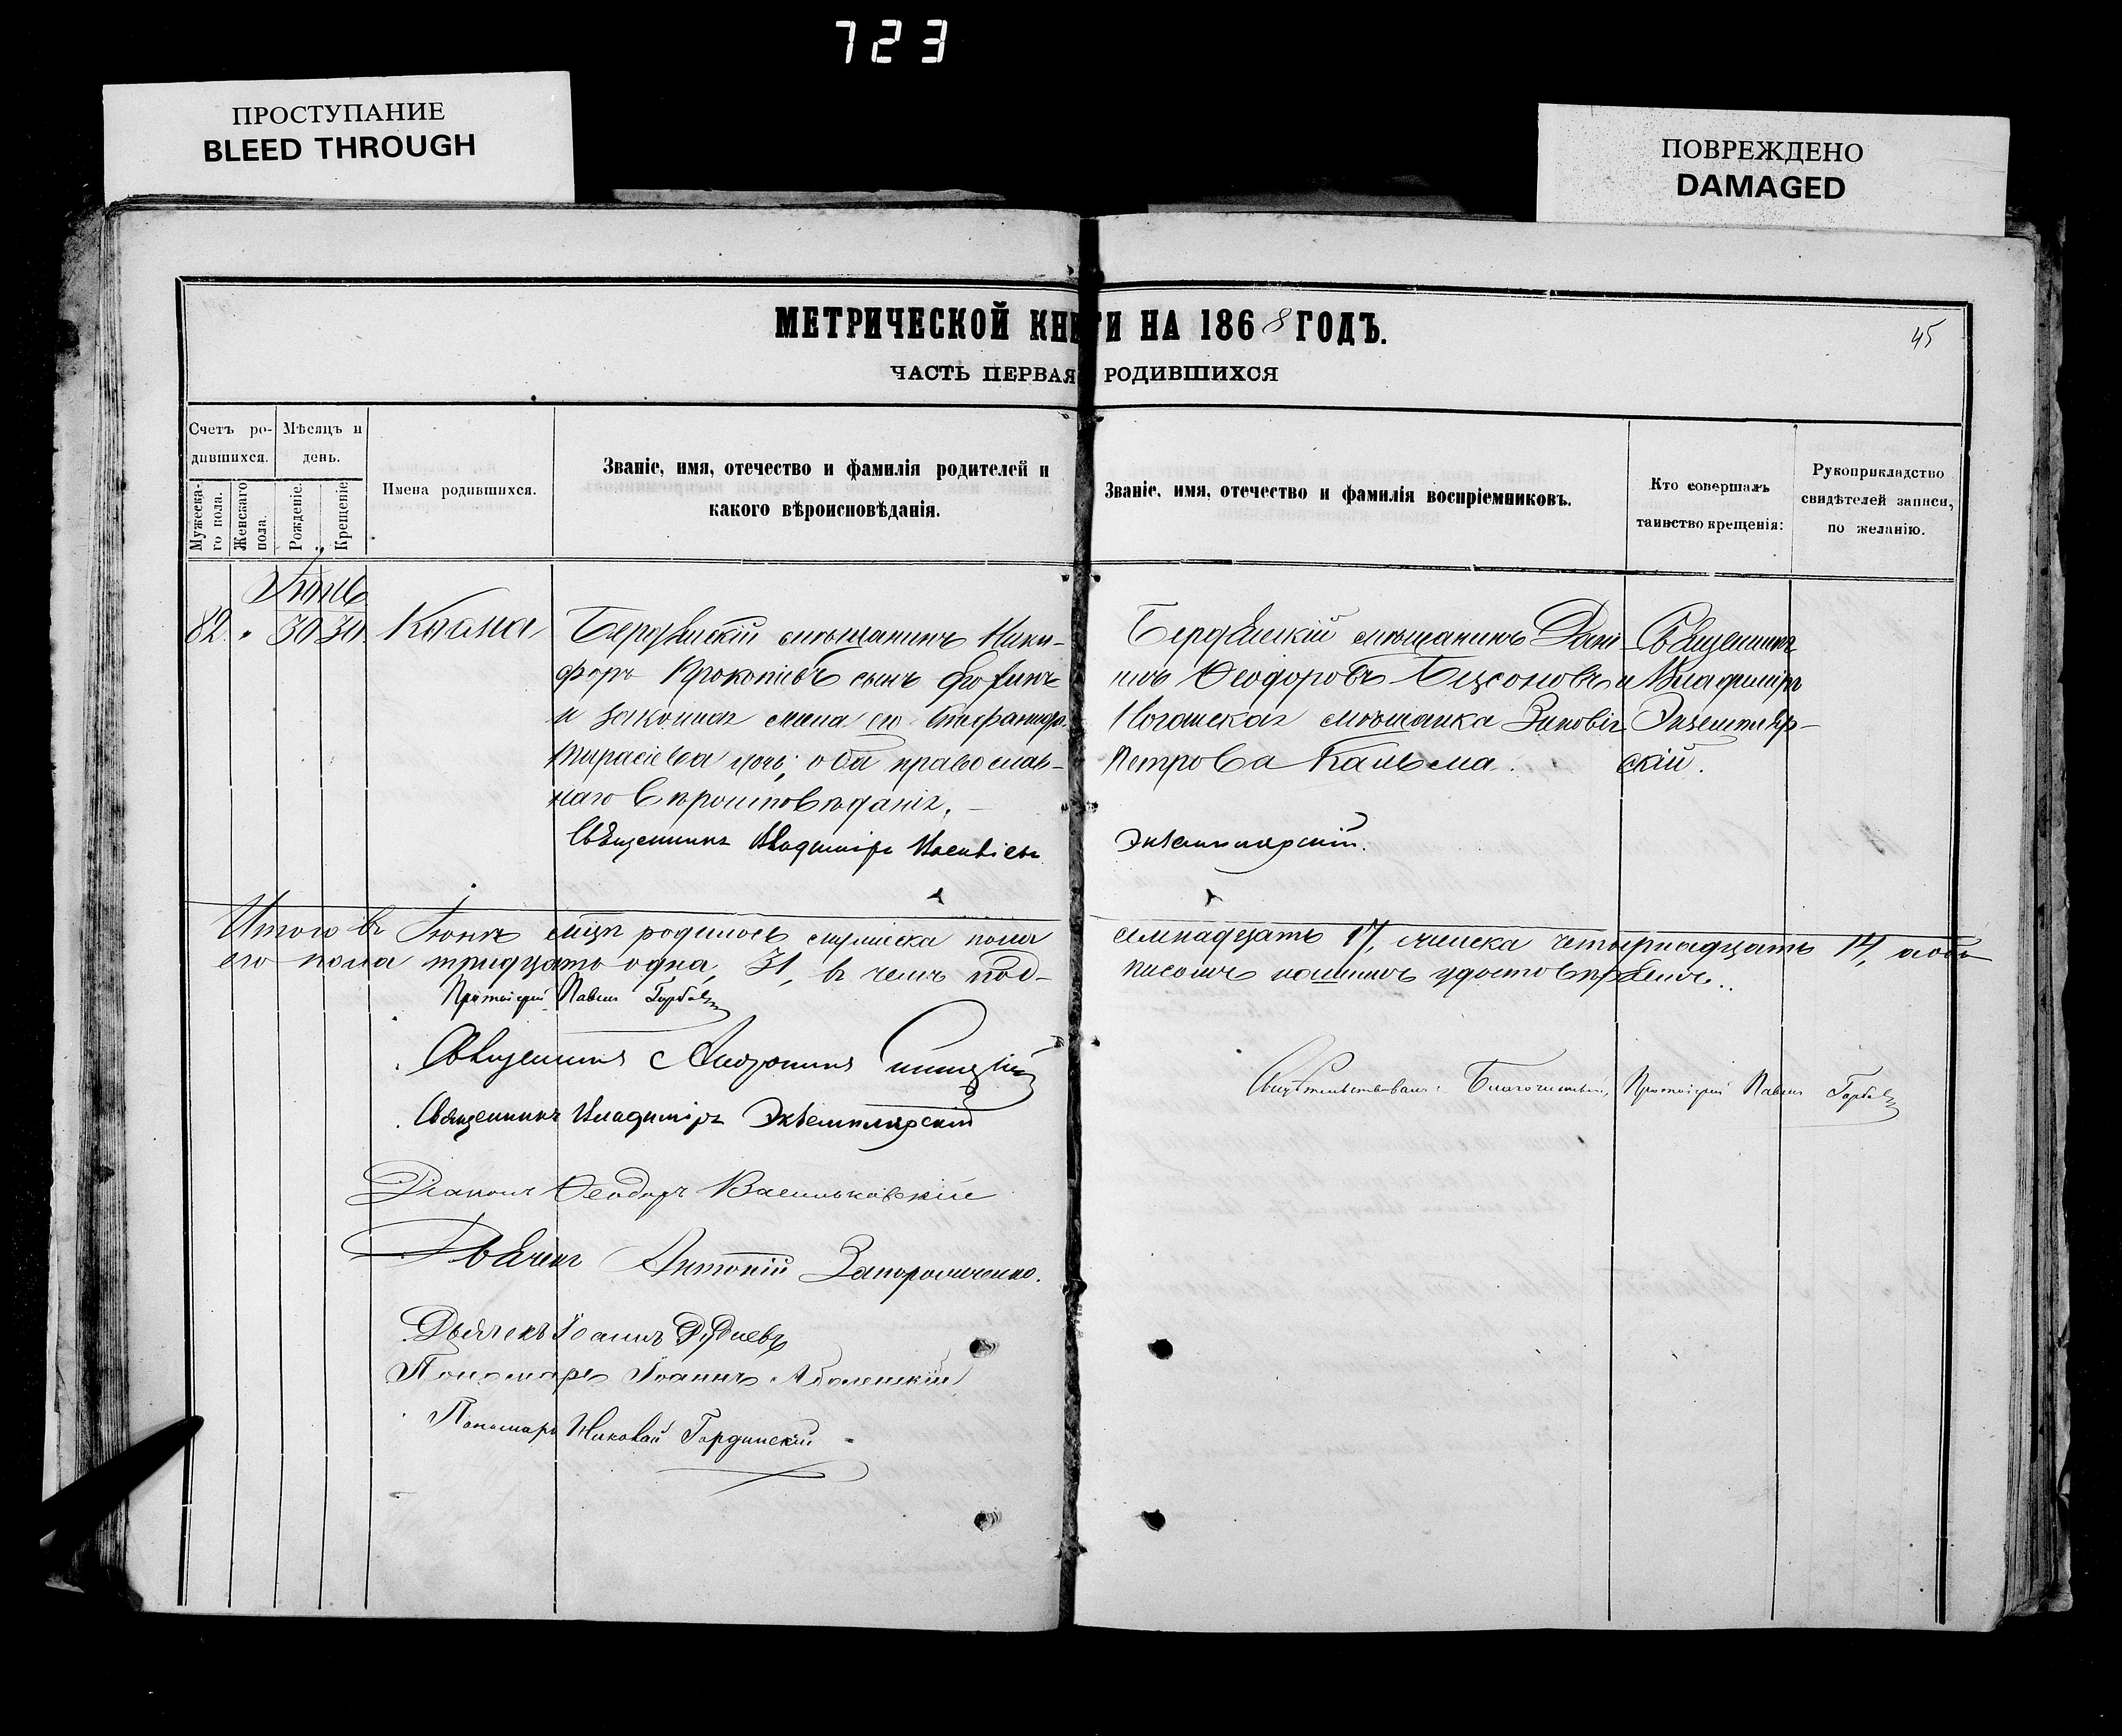 723
ПРОСТУПАНИЕ
BLEED THROUGH
ПОВРЕЖДЕНО
DAMAGED
МЕТРИЧЕСКОЙ КНИГИ НА 1868 ГОДЪ.
45
ЧАСТЬ ПЕРВАЯ РОДИВШИХСЯ
Счетъ ро-
дившихся.
Мужеска-
го пола.
Женскаго
пола.
Мѣсяцъ и
день.
Рожденіе.
Крещеніе
Имена родившихся.
Званіе, имя, отечество и фамилія родителей и
какого вѣроисповѣданія.
Званіе, имя, отечество и фамилія воспріемниковъ.
Кто совершалъ
таинство крещенія:
Рукоприкладство
свидѣтелей записи,
по желанію.
Іюнь
82. " 30 30
Бердянскій мѣщанинъ Ники-
форъ Прокопіевъ сынъ
и законная жена его
Тарасіева дочь; оба православ-
наго вѣроисповѣданія.
Священникъ Владиміръ
Бердянскій мѣщанинъ Дані-
илъ Ѳеодоровъ Безсоновъ и
Ногайская мѣщанка Зиновія
Петрова
Экземплярскій.
Священникъ
Владиміръ
Экземпляр-
скій.
Итого въ Іюнѣ родилось мужеска пола
семнадцать 17, женска четырнадцать 14, обо-
его пола тридцать одна, 31, въ чемъ под-
писомъ нашимъ удостовѣряемъ.
Протоіерей Павелъ
Священникъ
Священникъ Владиміръ Экземплярскій
Діаконъ Ѳеодоръ Васильковскій
Дьячекъ Антоній Запорожченко.
Дьячекъ Іоаннъ
Пономарь Іоаннъ
Пономарь Николай Гординскій
Свидѣтельствовалъ: Благочинный, Протоіерей Павелъ